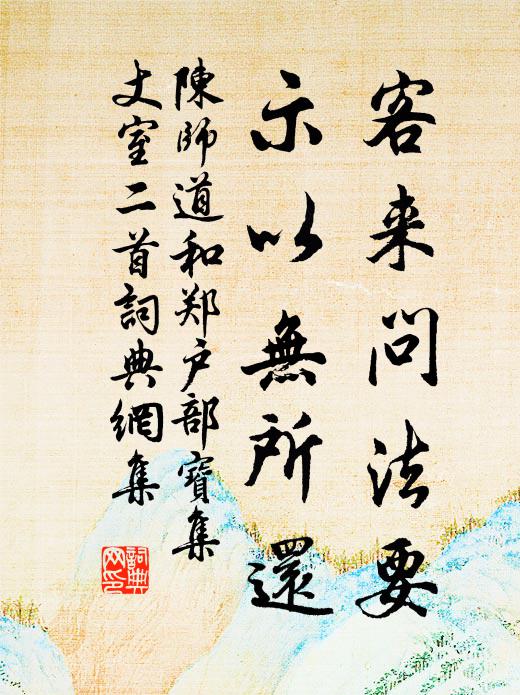 客来問法要
示以無所還
陳師道和郑户部寶集
丈室二首詞典網集
詞典
网印